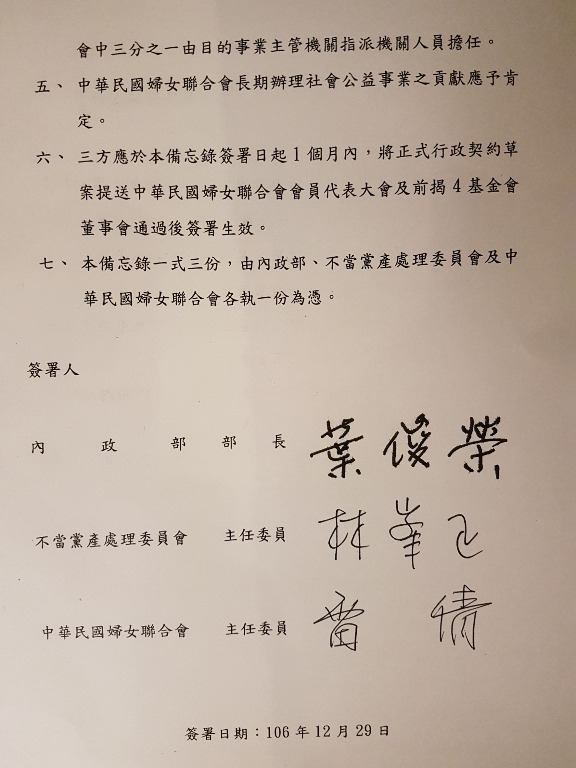 會中三分之一由目的事業主管機關指派機關人員擔任。
五、中華民國婦女聯合會長期辦理社會公益事業之貢獻應予肯
定。
六、三方應於本備忘錄簽署日起1個月內，將正式行政契約草
案提送中華民國婦女聯合會會員代表大會及前揭4基金會
董事會通過後簽署生效。
七、本備忘錄一式三份，由內政部、不當黨產處理委員會及中
華民國婦女聯合會各執一份為憑。
簽署人
內政部部長 葉俊榮
不當黨產處理委員會 主任委員 林峯正
中華民國婦女聯合會 主任委員 雷倩
簽署日期：106年12月29日